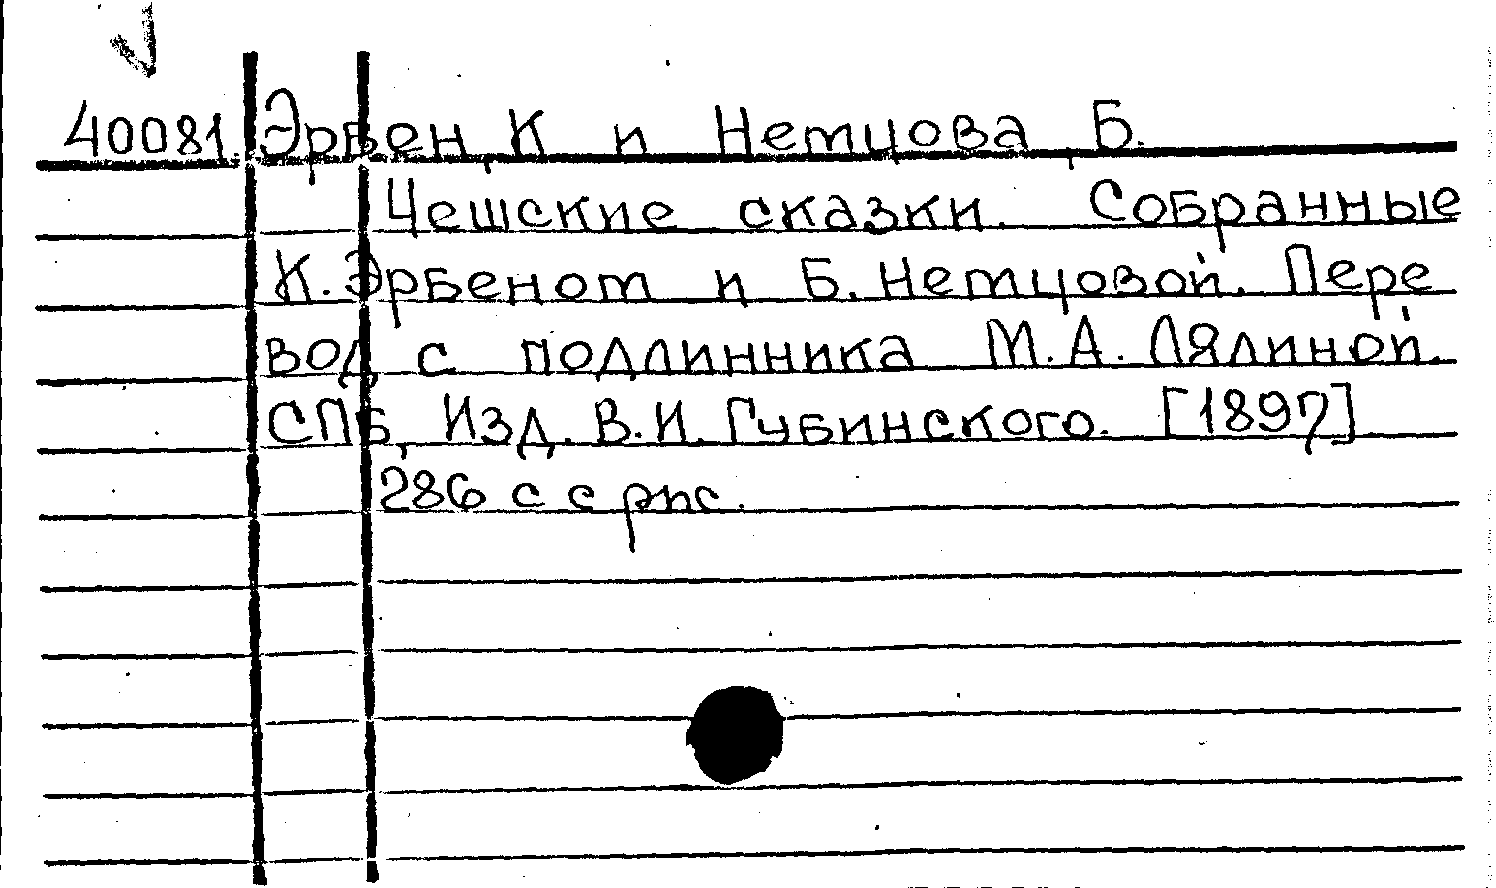 40081. Эрбен, К и Немцова, Б.
Чешские сказки. Собранные
К. Эрбеном и Б. Немцовой. Пере
вод с подлинника М. А. Лялиной.
СПб, Изд. В. И. Губинского. [1897]
286 с с рис.